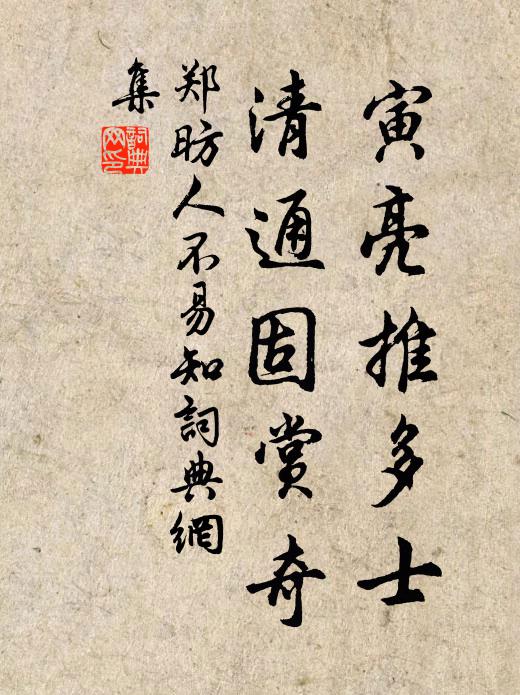 寅亮推多士
清通固赏奇
郑昉人不易知詞典網
集
詞典网印